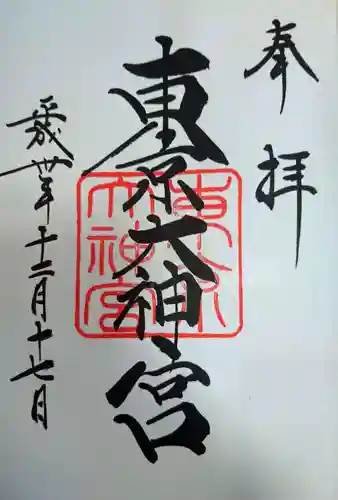 奉拝
東京大神宮
東京大神宮
平成卅年十二月十七日